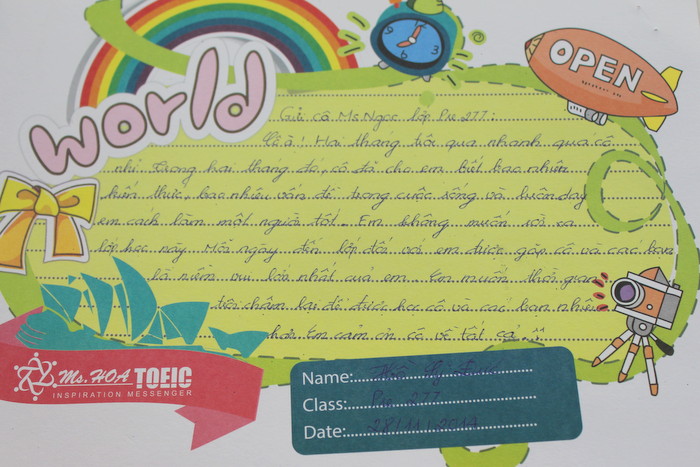 world
OPEN
Gửi cô Ms Ngọc lớp Pre 277:
Cô à! Hai tháng trôi qua nhanh quá cô
nhỉ. Trong hai tháng đó, cô đã cho em biết bao nhiêu
kiến thức, bao nhiêu vấn đề trong cuộc sống và luôn dạy
em cách làm một người tốt. Em không muốn rời xa
lớp học này. Mỗi ngày đến lớp đối với em được gặp cô và các bạn
là niềm vui lớn nhất của em. Em muốn thời gian
trôi chậm lại để được học cô và các bạn nhiều
hơn. Em cảm ơn cô về tất cả.
Ms. HOA TOEIC
INSPIRATION MESSENGER
Name:
Class: Pre 277
Date: 28/11/2017